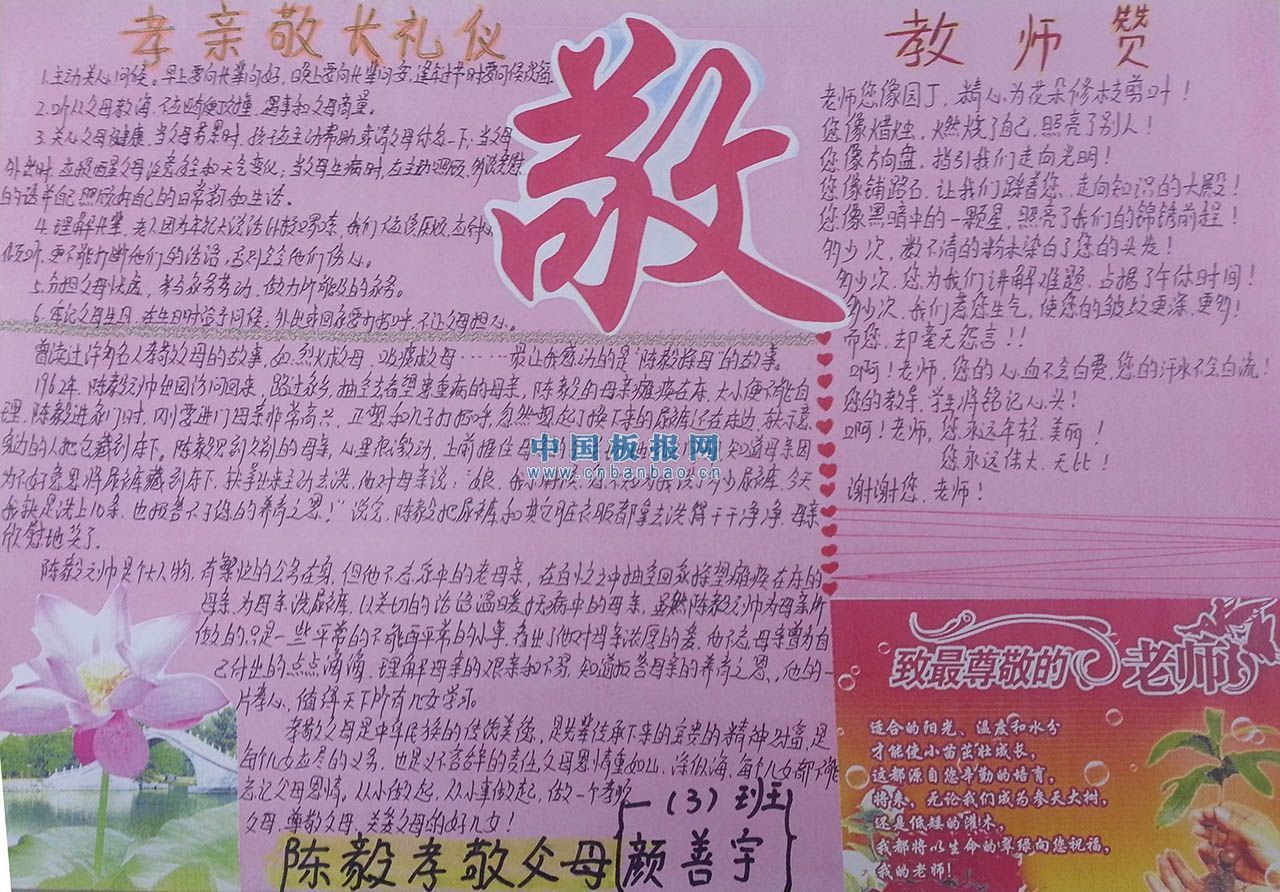 孝亲敬长礼仪
1.主动关心问候。早上要向长辈问好,晚上要向长辈问安,逢年过节时要问候祝福
2.听从父母教诲,不应顶撞,遇事和父母商量。
3.关心父母健康,当父母劳累时,孩子应主动帮助或请父母休息一下;当父母
外出时,应提醒父母注意安全和天气变化;当父母生病时,应主动照顾,多说关心
的话并自己照顾好自己的日常和生活。
4.理解长辈,老人因为年纪大说话比较啰嗦,我们不应该厌烦,应
倾听,更不能打断他们的话语,否则会令他们伤心。
5.分担父母忧虑,参与家务劳动,做力所能及的家务。
6.牢记父母生日,在生日时给予问候,外出或回家要打招呼,不让父母担心。
敬
曾读过许多名人孝敬父母的故事,如:烈火救母、最让我感动的是“陈毅探母”的故事。
1962年,陈毅元帅出国访问回来,路过家乡,抽空去看望患重病的母亲,陈毅的母亲瘫痪在床,大小便不能自
理。陈毅进家门时,母亲非常高兴,正想和儿子打招呼,忽然想起了换下来的尿裤还在床边,就示意
身边的人把它藏到床下。陈毅见到久别的母亲,心里很激动,上前握住母 知道母亲因
为不好意思将尿裤藏到床下,就拿出来主动去洗,他对母亲说:“娘,我小时候,您不知为我洗了多少尿裤,今天
我就是洗上10条,也报答不了您的养育之恩!”说完,陈毅把尿裤和其它脏衣服都拿去洗得干干净净,母亲
欣慰地笑了。
陈毅元帅是个大人物,有繁忙的公务在身,但他不忘家中的老母亲,在百忙之中抽空回家探望瘫痪在床的
母亲,为母亲洗尿裤,以关切的话语温暖了病中的母亲。虽然陈毅元帅为母亲所
做的只是一些平常的不能再平常的小事,看出了他对母亲浓厚的爱。他不忘母亲曾为自
己付出的点点滴滴,理解母亲的艰辛和不易,知道报答母亲的养育之恩,他的一
片孝心,值得天下所有儿女学习。
孝敬父母是中华民族的传统美德,是先辈传承下来的宝贵的精神财富,是
每个儿女应尽的义务,也是义不容辞的责任。父母恩情重如山,深似海,每个儿女都不能
忘记父母恩情。从小做起,从小事做起,做一个孝敬
父母、尊敬父母、关爱父母的好儿女!
陈毅孝敬父母
一(3)班
颜善宇
教师赞
老师您像园丁,精心为花朵修枝剪叶!
您像蜡烛,燃烧了自己,照亮了别人!
您像方向盘,指引我们走向光明!
您像铺路石,让我们踩着您,走向知识的大殿!
您像黑暗中的一颗星,照亮了我们的锦锈前程!
多少次,数不清的粉末染白了您的头发!
多少次,您为我们讲解难题,占据了午休时间!
多少次,我们惹您生气,使您的皱纹更深,更多!
而您,却毫无怨言!!
啊!老师,您的心血不会白费,您的汗水不会白流!
您的教导,学生将铭记心头!
啊!老师,您永远年轻、美丽!
您永远伟大、无比!
谢谢您,老师!
致最尊敬的老师
适合的阳光、温度和水分
才能使小苗茁壮成长,
这都源自您辛勤的培育,
将来,无论我们成为参天大树,
还是低矮的灌木,
我都将以生命的翠绿向您祝福,
我的老师!
中国板报网
www.cnbanbao.cn